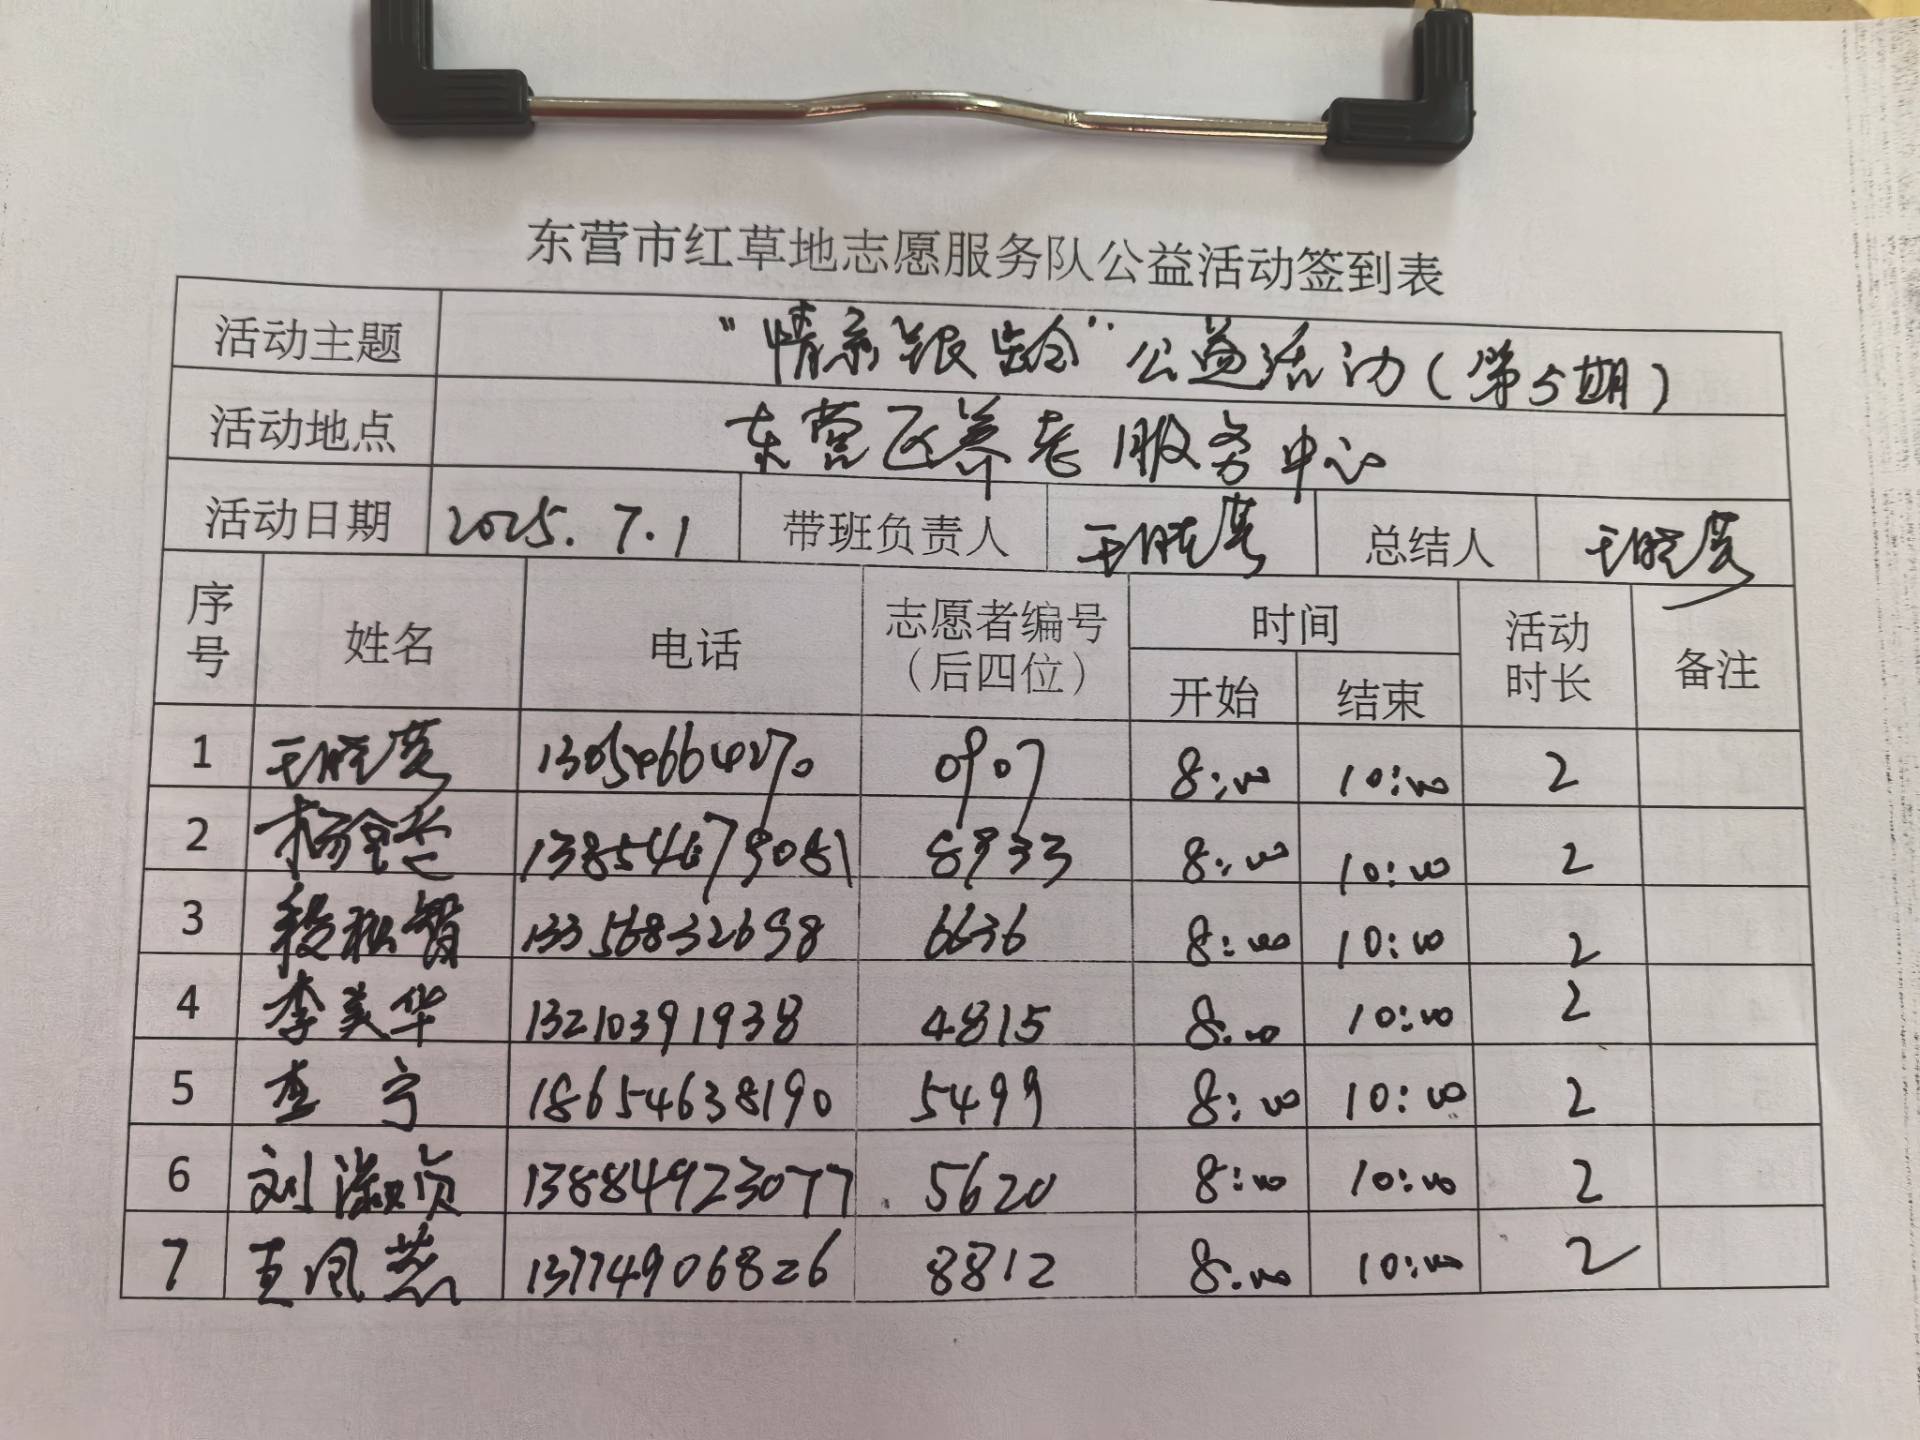 东营市红草地志愿服务队公益活动签到表
活动主题 "情系银龄"公益活动(第5期)
活动地点 东营区养老服务中心
活动日期 2025.7.1 带班负责人 王晓英 总结人 王晓英
序号 姓名 电话 志愿者编号(后四位) 时间 开始 结束 活动时长 备注
1 王晓英 0907 8:00 10:00 2
2 13854679081 8933 8:00 10:00 2
3 13356832698 6636 8:00 10:00 2
4 李美华 13210391938 4815 8:00 10:00 2
5 李宁 18654638190 5499 8:00 10:00 2
6 刘淑贞 13884923077 5620 8:00 10:00 2
7 王凤燕 13774906826 8812 8:00 10:00 2